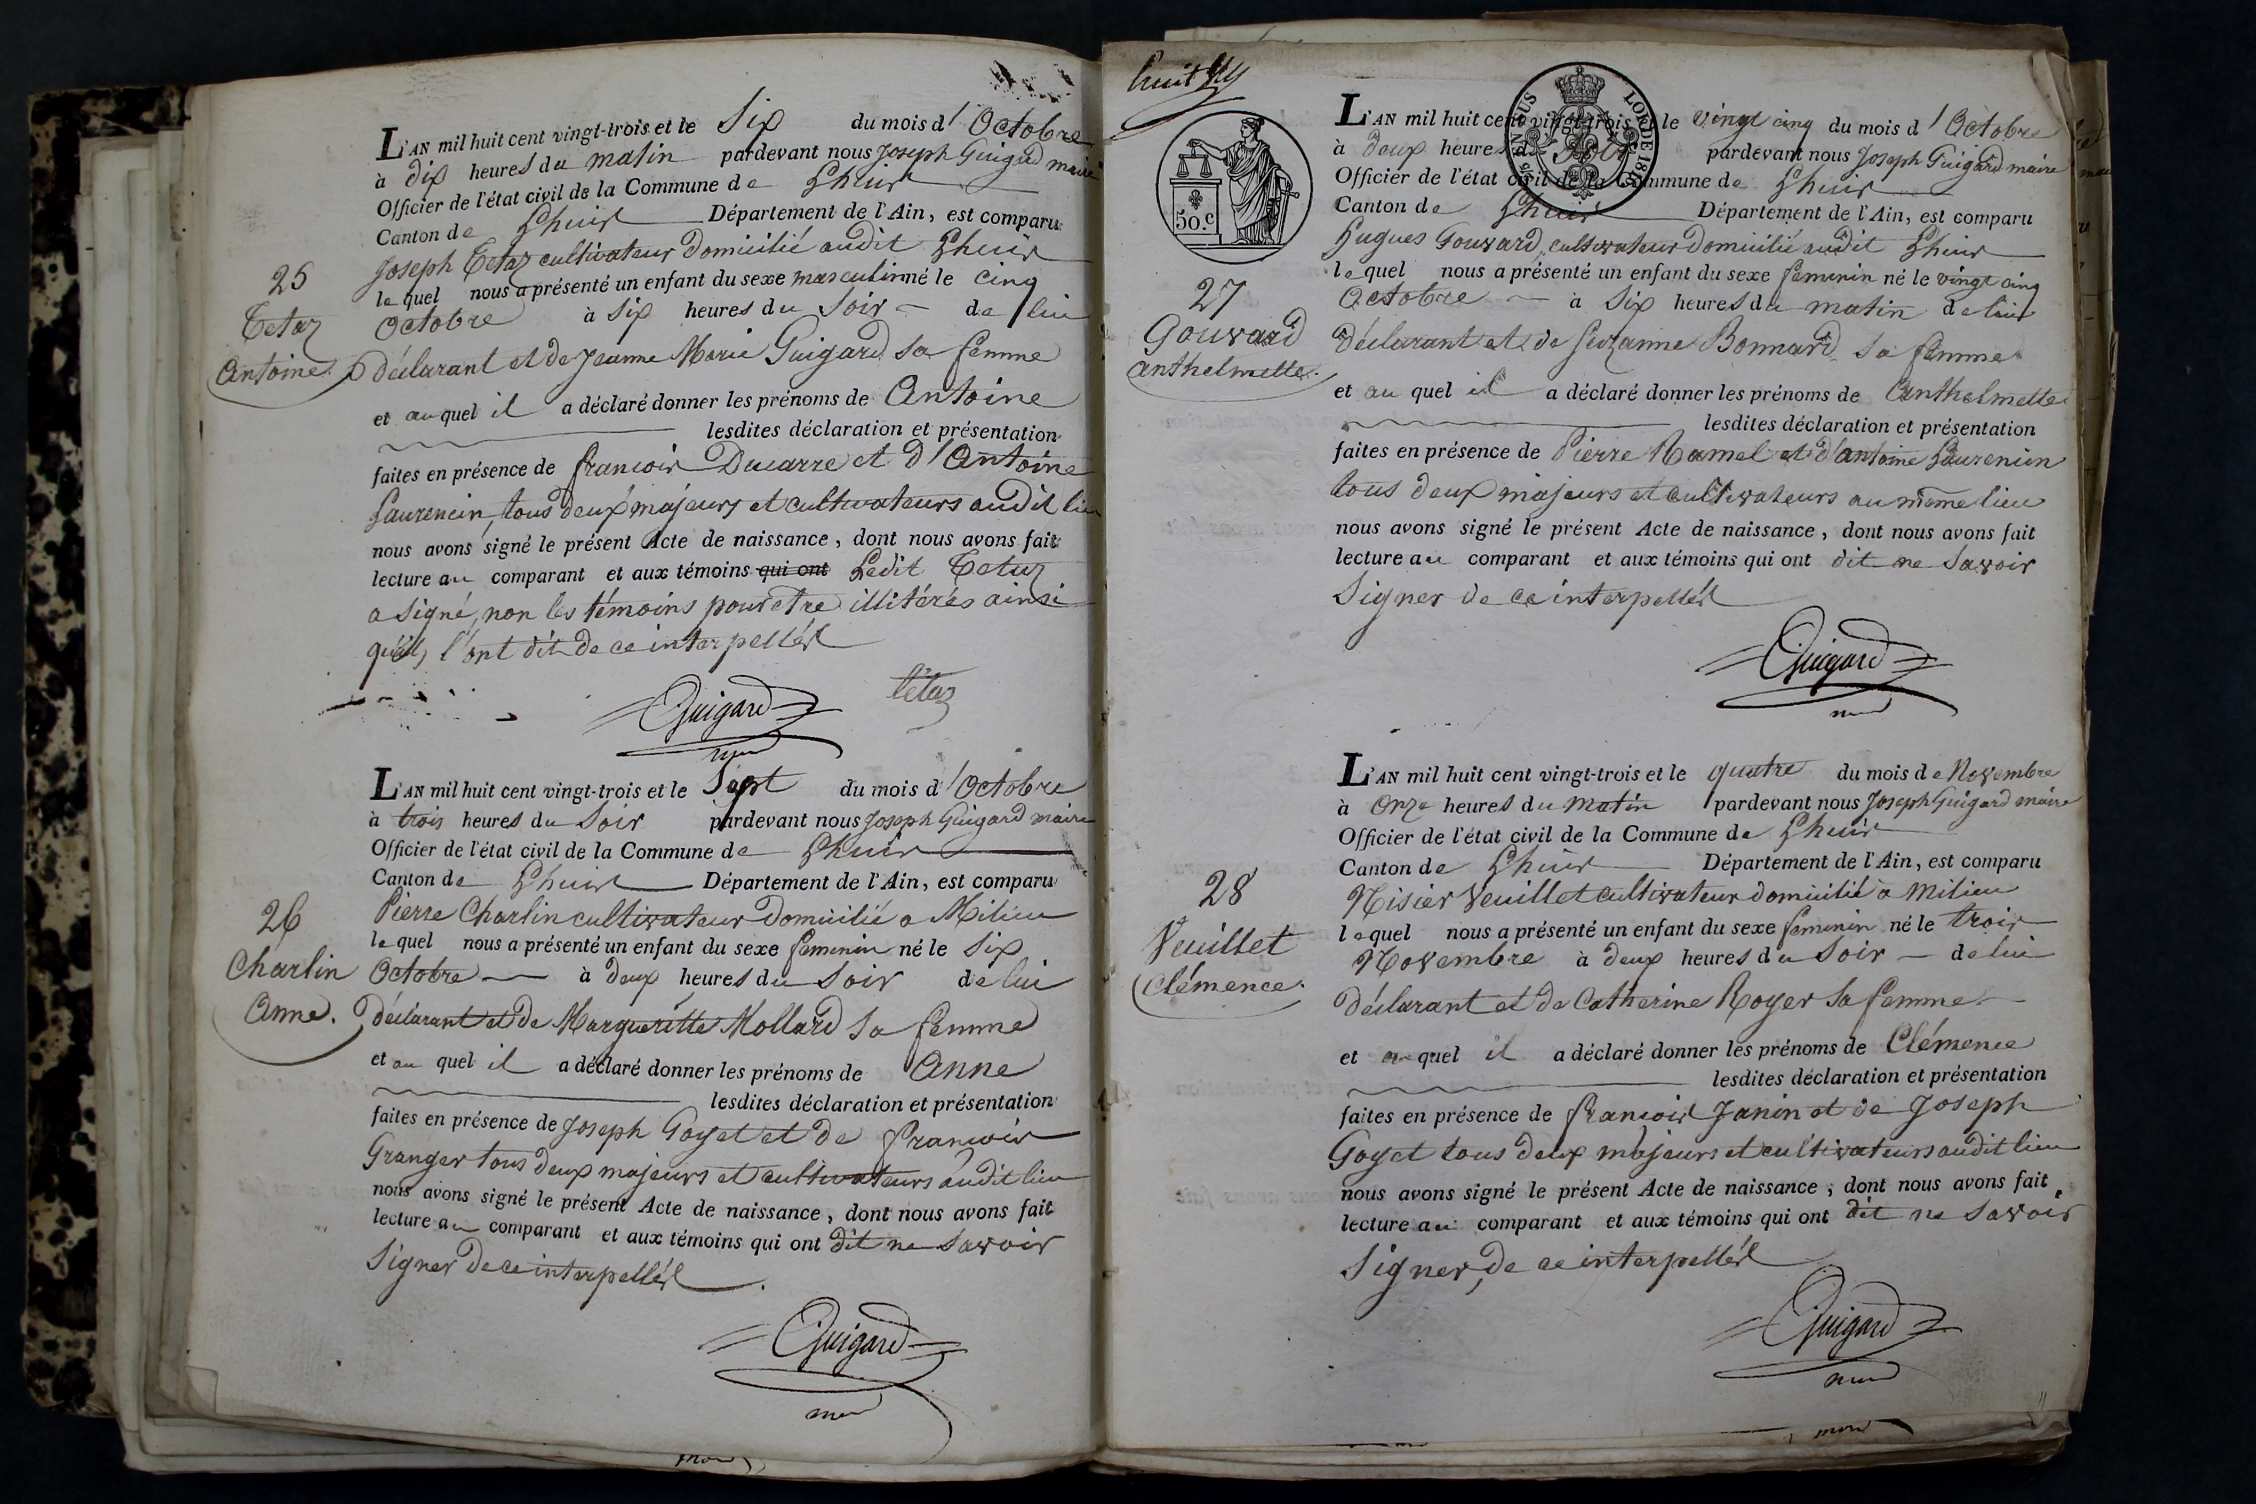 L'AN mil huit cent vingt-trois et le Six du mois d'Octobre
à dix heures du matin pardevant nous Joseph Guigard maire
Officier de l'état civil de la Commune de Lhuis
Canton de Lhuis Département de l'Ain, est comparu
Joseph Tetaz cultivateur domicilié audit Lhuis
lequel nous a présenté un enfant du sexe masculin né le cinq
Octobre à Six heures du Soir de lui
déclarant et de Jeanne Marie Guigard sa femme
et au quel il a déclaré donner les prénoms de Antoine
lesdites déclaration et présentation
faites en présence de francois Ducarre et d'Antoine
Laurencin, tous deux majeurs et cultivateurs audit lieu
nous avons signé le présent Acte de naissance, dont nous avons fait
lecture au comparant et aux témoins qui ont Ledit Tetaz
a Signé, non les témoins pour etre illitérés ainsi
qu'ils l'ont dit de ce interpellés
Guigard tétaz
25
Tetaz
Antoine.
L'AN mil huit cent vingt-trois et le Sept du mois d'Octobre
à trois heures du Soir pardevant nous Joseph Guigard maire
Officier de l'état civil de la Commune de Lhuis
Canton de Lhuis Département de l'Ain, est comparu
Pierre Charlin cultivateur domicilié a Milieu
lequel nous a présenté un enfant du sexe feminin né le Six
Octobre à deux heures du Soir de lui
déclarant et de Margueritte Mollard sa femme
et au quel il a déclaré donner les prénoms de Anne
lesdites déclaration et présentation
faites en présence de Joseph Goyet et de francois
Granger tous deux majeurs et cultivateurs audit lieu
nous avons signé le présent Acte de naissance, dont nous avons fait
lecture au comparant et aux témoins qui ont dit ne Savoir
Signer de ce interpellés
Guigard
26
Charlin
Anne.
huit
50.c
L'AN mil huit cent vingt-trois et le vingt cinq du mois d'Octobre
à deux heures du Soir pardevant nous Joseph Guigard maire
Officier de l'état civil de la Commune de Lhuis
Canton de Lhuis Département de l'Ain, est comparu
Hugues Gouvard, cultivateur domicilié audit Lhuis
lequel nous a présenté un enfant du sexe feminin né le vingt cinq
Octobre à Six heures du matin de lui
déclarant et de Suzanne Bonnard sa femme
et au quel il a déclaré donner les prénoms de Anthelmette
lesdites déclaration et présentation
faites en présence de Pierre Ramel et d'antoine Laurencin
tous deux majeurs et cultivateurs au même lieu
nous avons signé le présent Acte de naissance, dont nous avons fait
lecture au comparant et aux témoins qui ont dit ne Savoir
Signer de ce interpellés
Guigard
27
Gouvard
anthelmette.
L'AN mil huit cent vingt-trois et le quatre du mois de Novembre
à Onze heures du matin pardevant nous Joseph Guigard maire
Officier de l'état civil de la Commune de Lhuis
Canton de Lhuis Département de l'Ain, est comparu
Nisier Veuillet cultivateur domicilié a Milieu
lequel nous a présenté un enfant du sexe feminin né le trois
Novembre à deux heures du Soir de lui
déclarant et de Catherine Royer sa femme
et au quel il a déclaré donner les prénoms de Clémence
lesdites déclaration et présentation
faites en présence de francois Janin et de Joseph
Goyet tous deux majeurs et cultivateurs audit lieu
nous avons signé le présent Acte de naissance, dont nous avons fait
lecture au comparant et aux témoins qui ont dit ne Savoir
Signer, de ce interpellés
Guigard
28
Veuillet
Clémence.